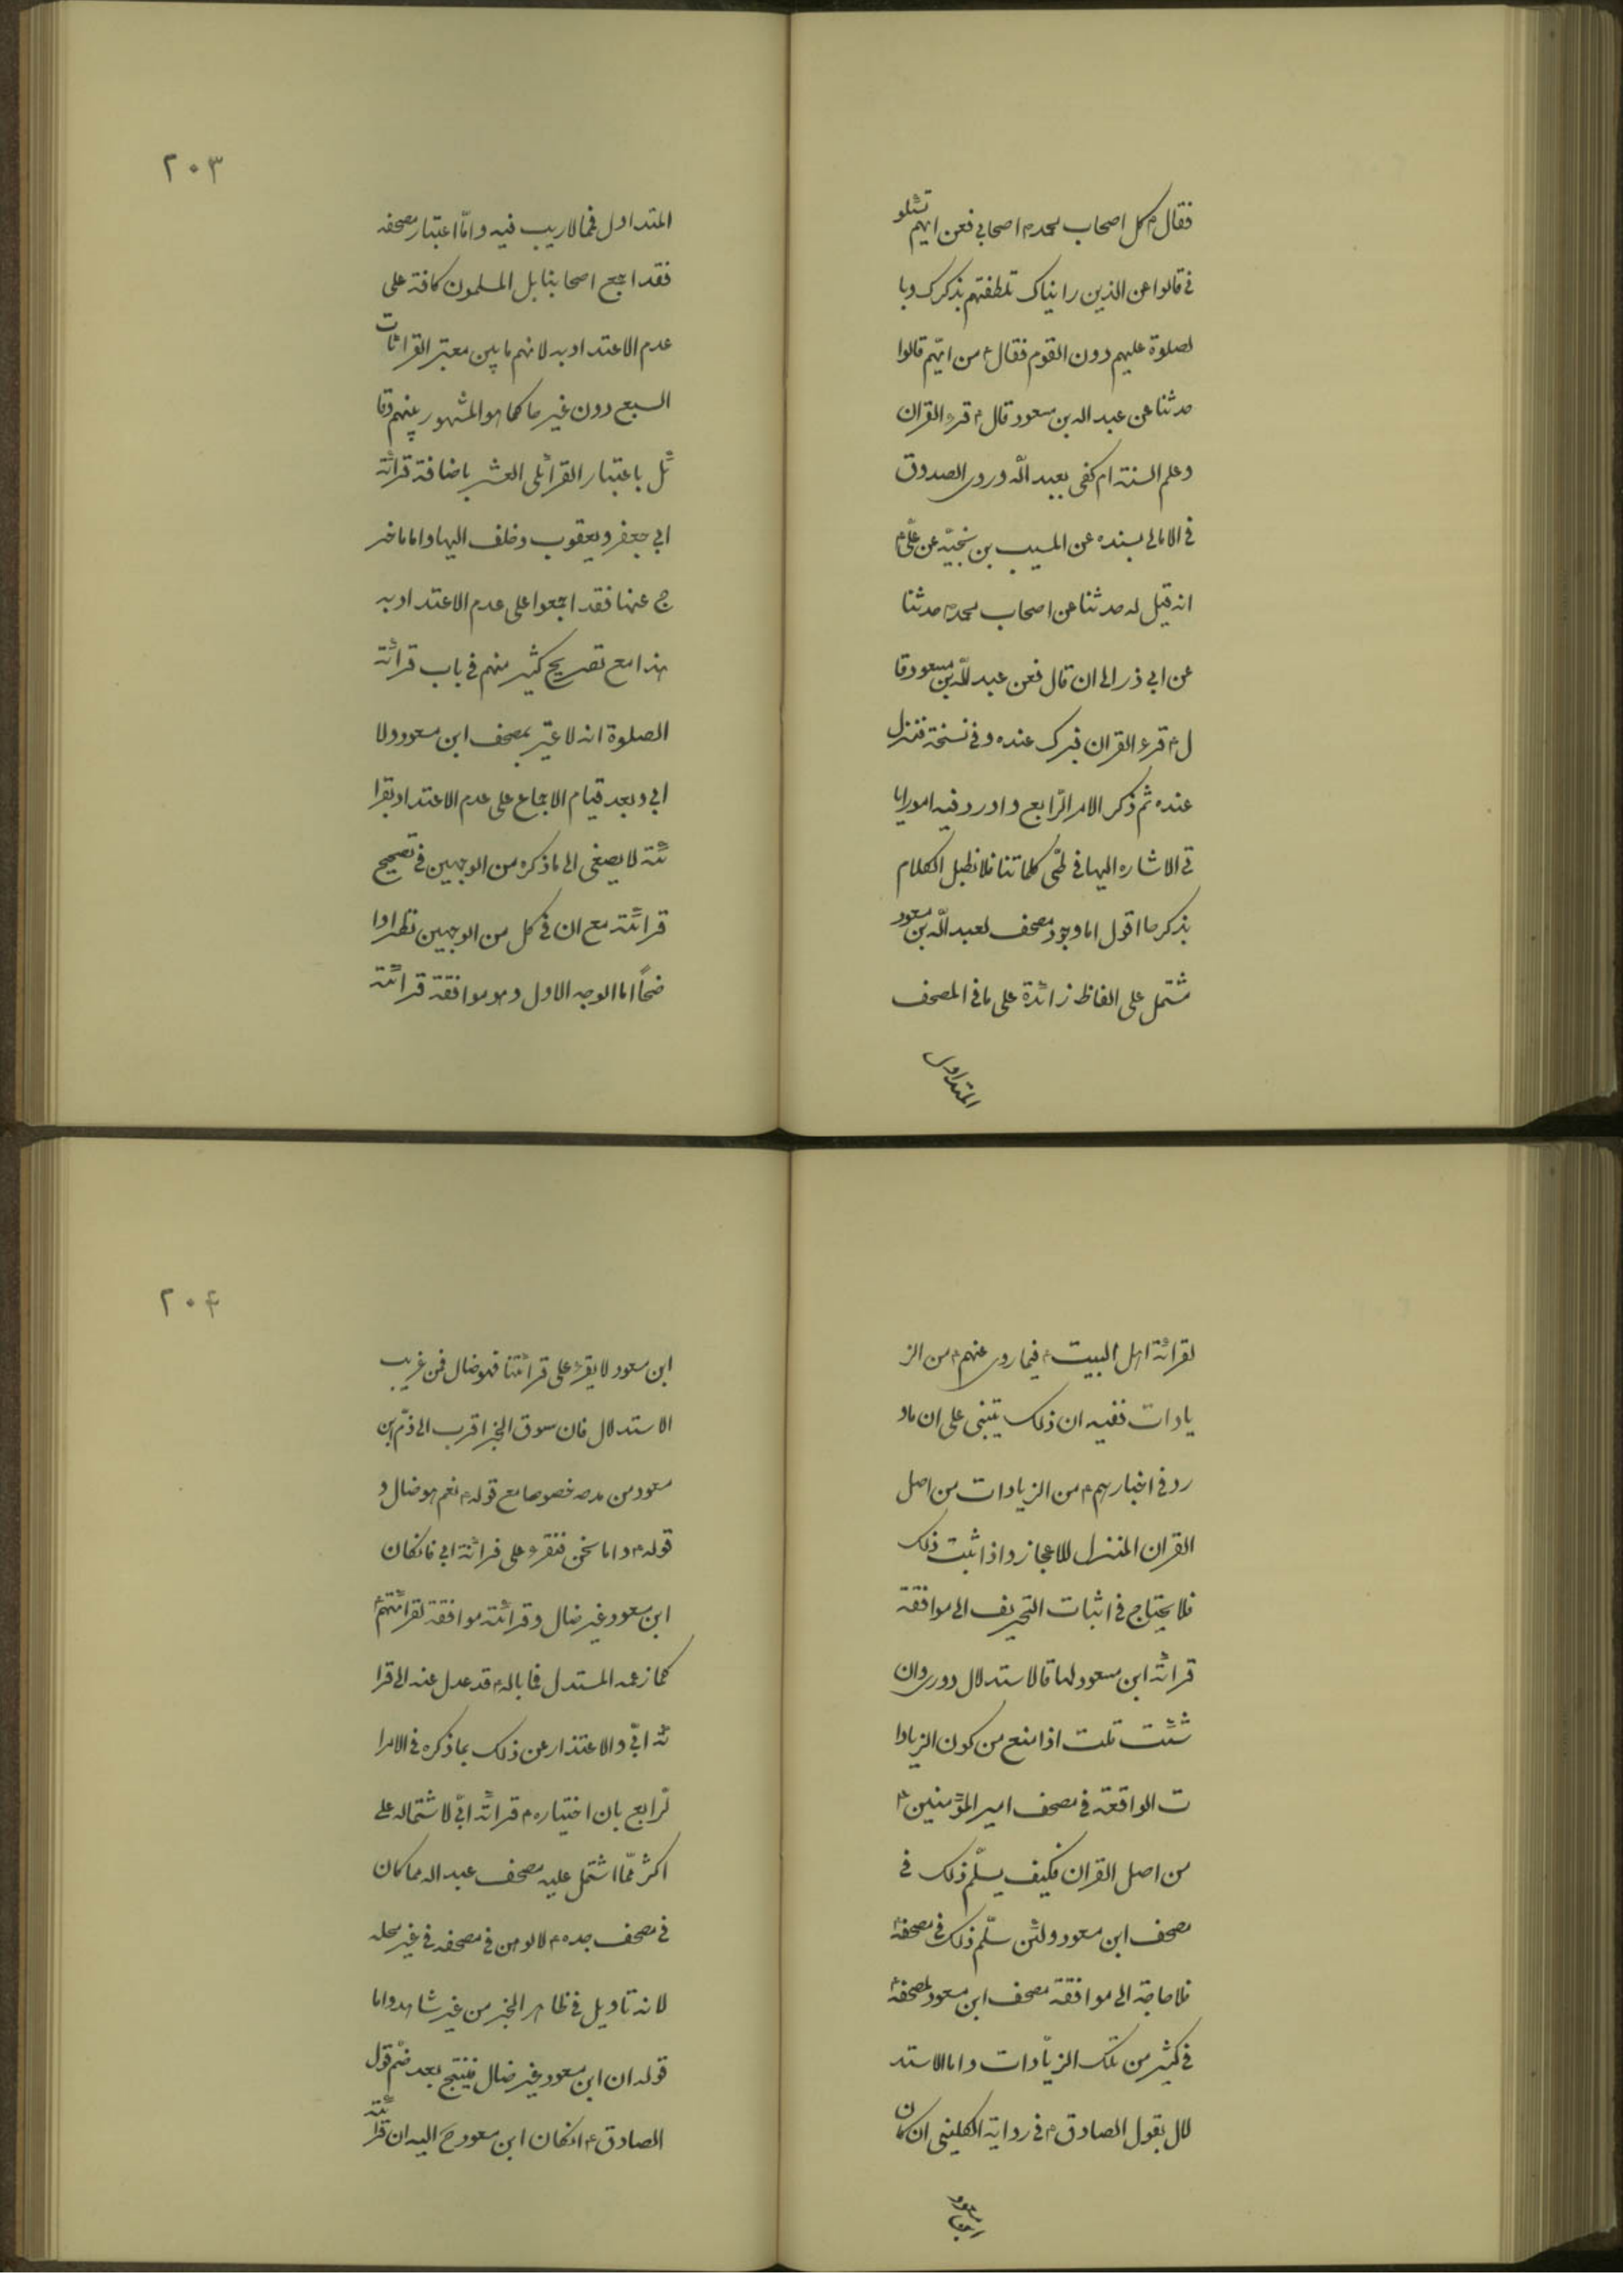 فقال ع كل اصحاب محمد ص اصحابي فعن ايهم تسئلو
ني قالوا عن الذين رايناك تلطفتهم بذكرك وبا
لصلوة عليهم دون القوم فقال ع من ايّهم قالوا
حدثنا عن عبد الله بن مسعود قال ع قرء القران
وعلم السنة ام كفى بعبد الله وروى الصدوق
في الامالي بسنده عن المسيب بن نجيّة عن علي ع
انه قيل له حدثنا عن اصحاب محمد ص حدثنا
عن ابي ذر الى ان قال فعن عبد الله بن مسعود قا
ل ع قرء القران فبرك عنده وفي نسخة فنزل
عنده ثم ذكر الامر الرّابع واورد فيه امورا يا
تي الاشاره اليها في طيّ كلماتنا فلا نطيل الكلام
بذكرها اقول اما وجود مصحف لعبد الله بن مسعود
مشتمل على الفاظ زائدة على ما في المصحف
المتداول
٢٠٣
المتداول فمما لا ريب فيه وامّا اعتبار مصحفه
فقد اجمع اصحابنا بل المسلمون كافة على
عدم الاعتداد به لانهم ما بين معتبر القرائات
السبع دون غيرها كما هو المشهور بينهم وقا
ئل باعتبار القرائى العشر باضافة قرائة
ابي جعفر ويعقوب وخلف اليها واما ما خر
ج عنها فقد اجمعوا على عدم الاعتداد به
هذا مع تصريح كثير منهم في باب قرائة
الصلوة انه لا عبرة بمصحف ابن مسعود ولا
ابي وبعد قيام الاجماع على عدم الاعتداد بقرا
ئته لا يصغى الى ما ذكره من الوجهين في تصحيح
قرائته مع ان في كل من الوجهين نظرا وا
ضحاً اما الوجه الاول وهو موافقة قرائته
لقرائة اهل البيت ع فيما روى عنهم ع من الز
يادات ففيه ان ذلك يبتنى على ان ما و
رد في اخبارهم ع من الزيادات من اصل
القران المنزل للاعجاز واذا ثبت ذلك
فلا يحتاج في اثبات التحريف الى موافقة
قرائة ابن مسعود لها فالاستدلال دورى وان
شئت قلت اذا منع من كون الزيادا
ت الواقعة في مصحف امير المؤمنين ع
من اصل القران فكيف يسلّم ذلك في
مصحف ابن مسعود ولئن سلّم ذلك في مصحفه ع
فلا حاجة الى موافقة مصحف ابن مسعود لمصحفه ع
في كثير من تلك الزيّادات واما الاستد
لال بقول الصادق ع في رواية الكليني ان كان
ابن مسعود
٢٠٤
ابن مسعود لا يقرء على قرائتنا فهو ضال فمن غريب
الاستدلال فان سوق الخبر اقرب الى ذمّ ابن
مسعود من مدحه خصوصا مع قوله ع نعم هو ضال و
قوله ع واما نحن فنقرء على قرائة ابي فانكان
ابن مسعود غير ضال وقرائته موافقة لقرائتهم ع
كما زعمه المستدل فما باله ع قد عدل عنه الى قرا
ئة ابيّ والاعتذار عن ذلك بما ذكره في الامرا
لرّابع بان اختياره ع قرائة ابيّ لاشتماله على
اكثر ممّا اشتمل عليه مصحف عبد الله مما كان
في مصحف جده ع لا لوهن في مصحفه في غير محله
لانه تاويل في ظاهر الخبر من غير شاهد واما
قوله ان ابن مسعود غير ضال فينتج بعد ضّم قول
الصادق ع انكان ابن مسعود ح اليه ان قرائته